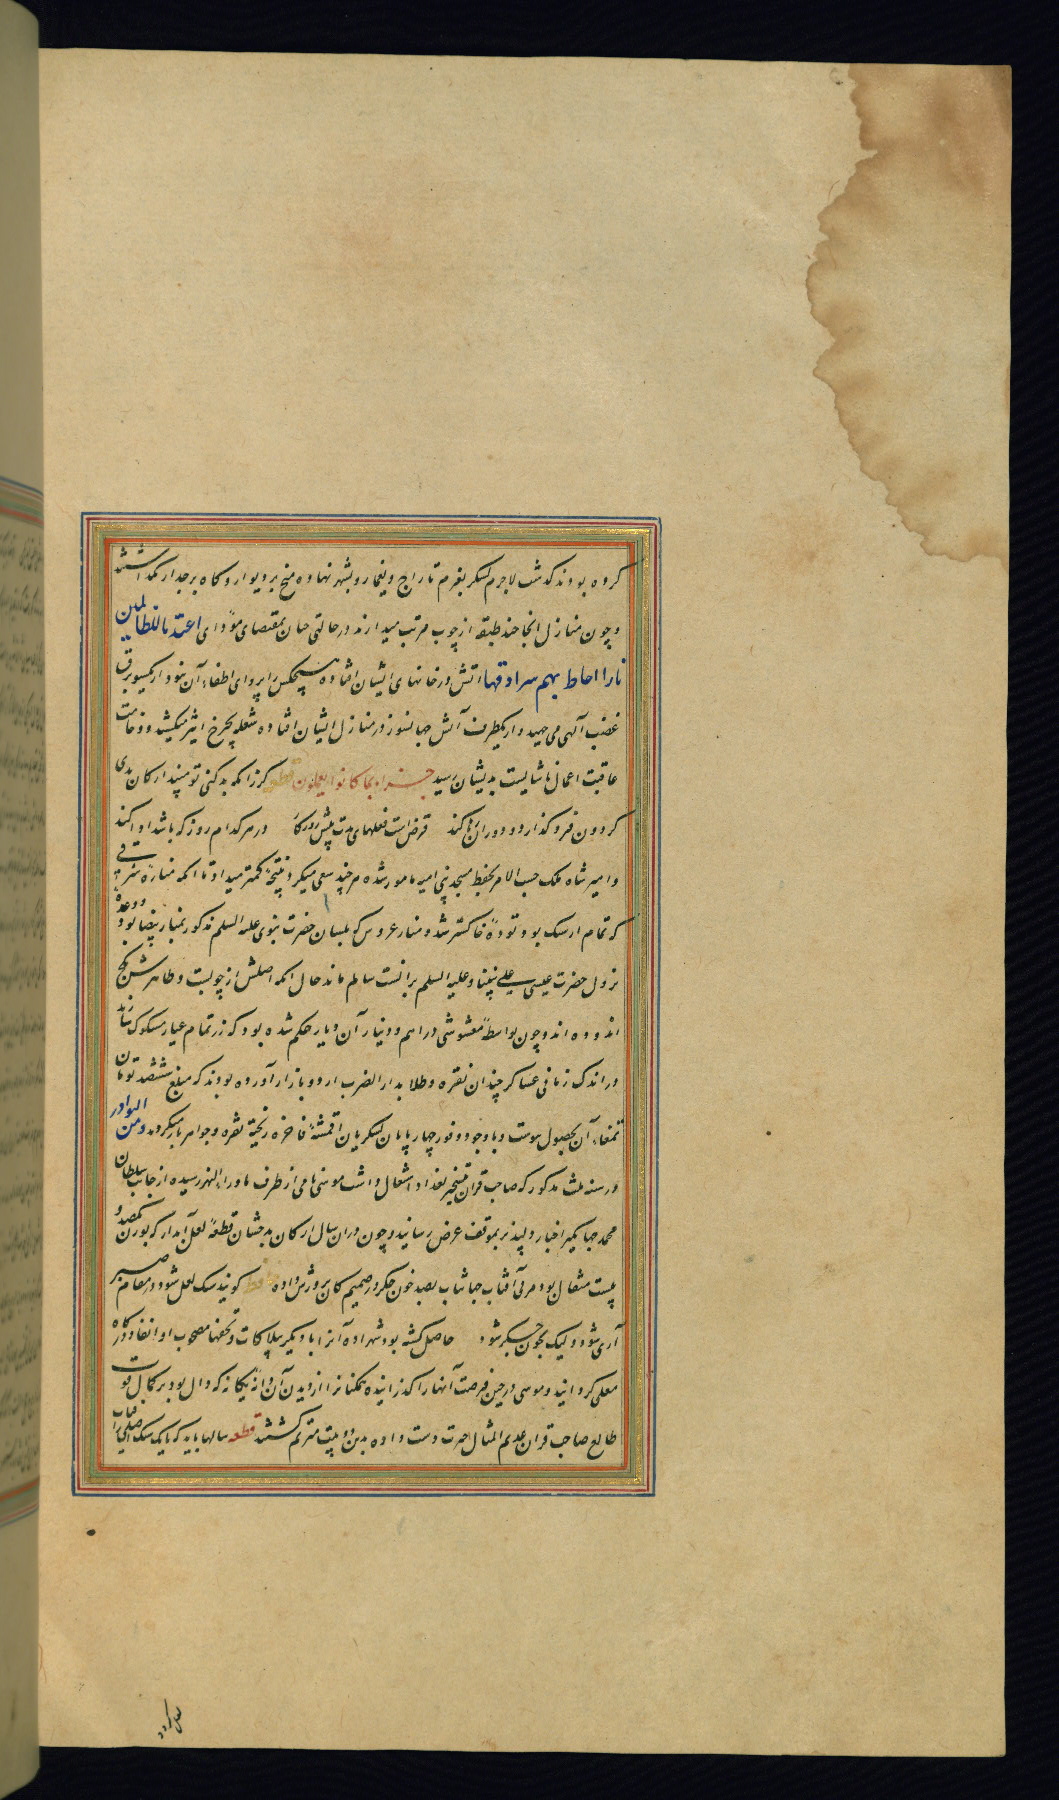 کروه بودند کذشت لاجرم لشکر بعزم تاراج و یغما رو بشهر نهاده میخ بر دیوار و کاه بر جدار نکذاشتند
و چون منازل انجا چند طبقه از چوب مرتب میدارند در حالتی چنان بمقتضای مؤدای اعتدنا للظالمین
نارا احاط بهم سرادقها اتش در خانهای ایشان افتاده هیچکس را پروای اطفاء آن نبود از یکسو برق
غضب آلهی می جهید و از یکطرف آتش جهانسوز در منازل ایشان افتاده شعله بچرخ اثیر میکشید و وخامت
عاقبت اعمال ناشایست بدیشان رسید جزاء بما کانوا یعملون قطعه کر زانکه بد کنی تو مپندار کان بدی
کردون فرو کذارد و دوران رها کند قرض است فعلهای بدت پیش روزکار در هر کدام روز که باشد ادا کند
و امیر شاه ملک حسب الامر بحفظ مسجد بنی امیه مامور شده هر چند سعی میکرد نتیجه کمتر میداد تا انکه مناره شرقی
که تمام از سنک بود توده خاکستر شد و منار عروس که بلسان حضرت نبوی علیه السلم مذکور بمنار بیضا بود و وعده
نزول حضرت عیسی علی نبینا و علیه السلم بر انست سالم ماند حال انکه اصلش از چوبست و ظاهرش بکج
اندوده اند و چون بواسطه مغشوشی دراهم و دنیار آن دیار حکم شده بود که زر تمام عیار مسکوک سازند
در اندک زمانی عساکر چندان نقره و طلا بدار الضرب اردو بازار آورده بودند که مبلغ ششصد تومان
تمغاء آن بحصول پیوست و با وجود وفور چهارپایان لشکریان اقمشه فاخره ریخته نقره و جواهر بار میکردند و من النوادر
در سنه مذکور که صاحب قران بتسخیر بغداد اشتغال داشت موسی نامی از طرف ماوراء النهر رسیده از جانب سلطان
محمد جهانکیر اخبار دلپذیر بموقف عرض رسانید و چون دران سال از کان بدخشان قطعه لعل آبدار که بوزن یکصد و
بیست مثقال بود مربی آفتاب جهانتاب بصد خون جکر در صمیم کان پرورش داده کویند سنک لعل شود در مقام صبر
آری شود ولیک بخون جکر شود حاصل کشته بود شهزاده آنرا با دیکر بیلاکات و تحفها مصحوب او انفاذ درکاه
معلی کردانید و موسی در چین فرصت آنها را کذرانیده همکنانرا از دیدن آن دانه یکانه که دال بود بر کمال قوت
طالع صاحب قران عدیم المثال حیرت دست داده بدین دو بیت مترنم کشتند قطعه سالها باید که تا یک سنک اصلی ز افتاب
لعل کردد